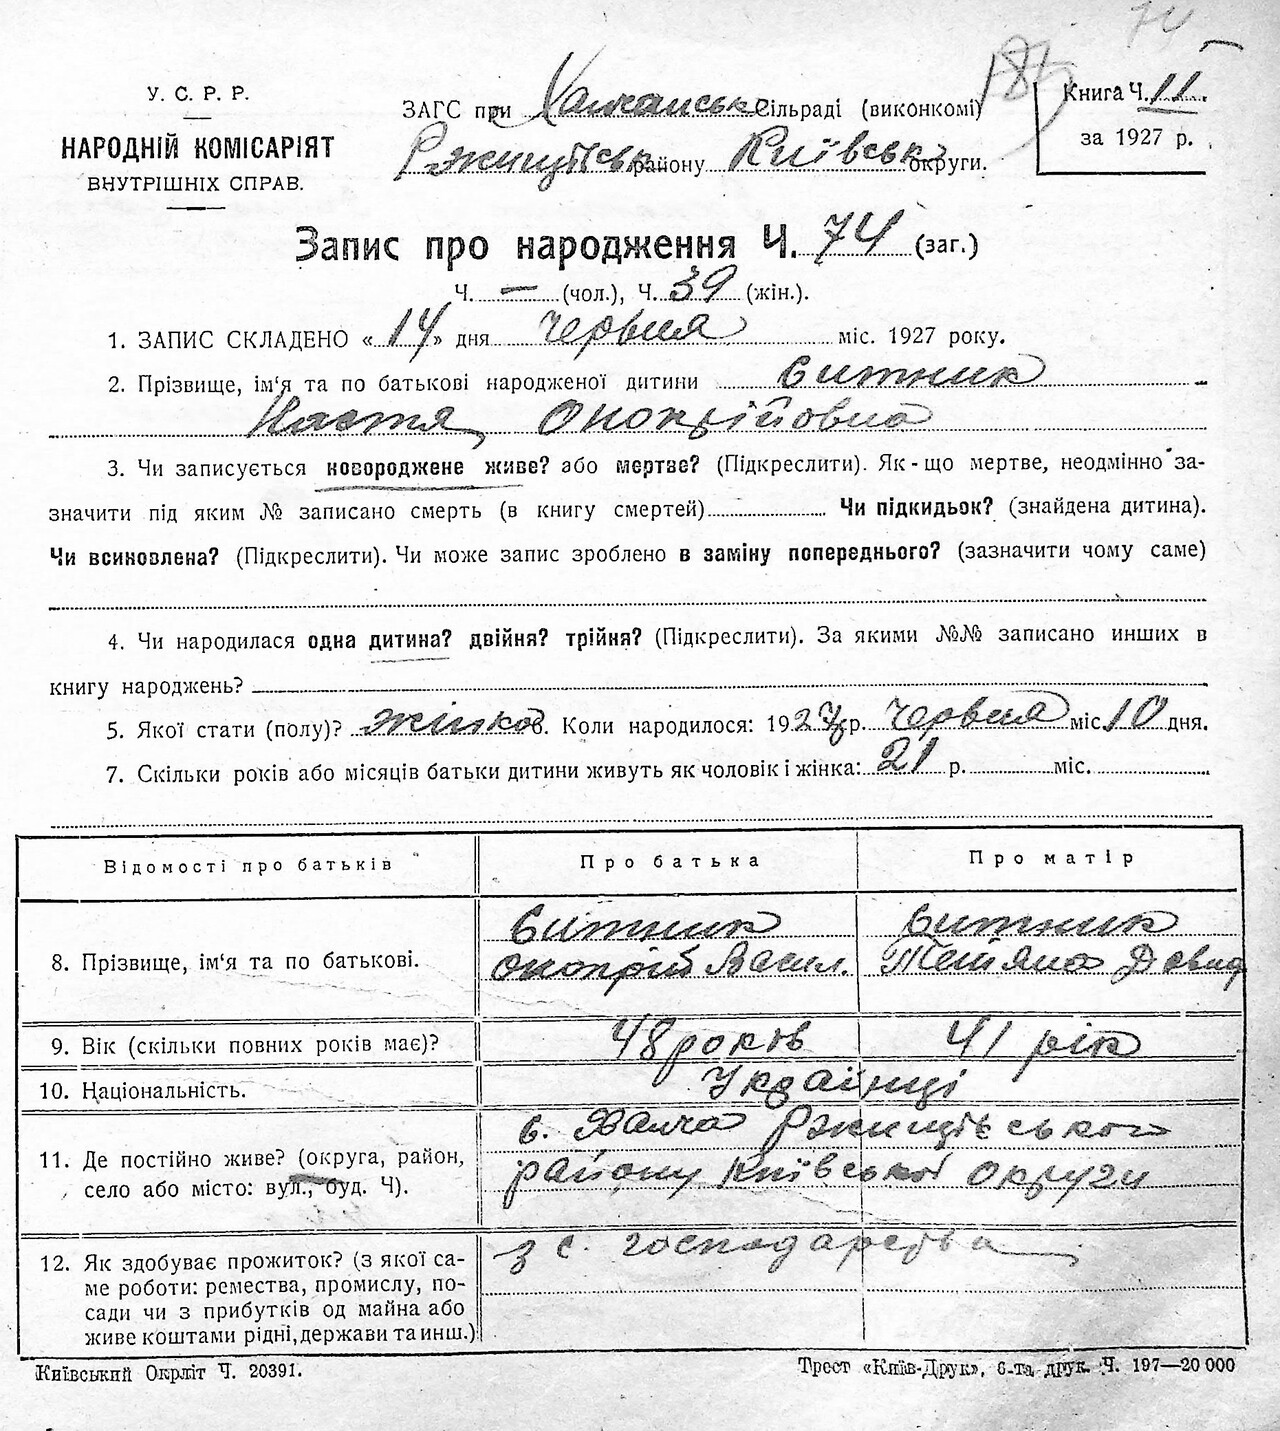 74
183
У. С. Р. Р.
НАРОДНІЙ КОМІСАРІЯТ
ВНУТРІШНІХ СПРАВ.
ЗАГС при Халчанськ сільраді (виконкомі)
Ржищівськ району Київськ округи.
Книга Ч. 11
за 1927 р.
Запис про народження Ч. 74 (заг.)
Ч. — (чол.), Ч. 39 (жін.).
1. ЗАПИС СКЛАДЕНО «14» дня червня міс. 1927 року.
2. Прізвище, ім'я та по батькові народженої дитини Ситник
Настя Онопрійовна
3. Чи записується новороджене живе? або мертве? (Підкреслити). Як-що мертве, неодмінно за-
значити під яким № записано смерть (в книгу смертей) Чи підкидьок? (знайдена дитина).
Чи всиновлена? (Підкреслити). Чи може запис зроблено в заміну попереднього? (зазначити чому саме)
4. Чи народилася одна дитина? двійня? трійня? (Підкреслити). За якими №№ записано инших в
книгу народжень?
5. Якої стати (полу)? жінков. Коли народилося: 1927 р. червня міс. 10 дня.
7. Скільки років або місяців батьки дитини живуть як чоловік і жінка: 21 р. міс.
Відомості про батьків Про батька Про матір
8. Прізвище, ім'я та по батькові. Ситник Ситник
Онопрій Васил. Тетяна Давид
9. Вік (скільки повних років має)? 48 років 41 рік
10. Національність. Українці
11. Де постійно живе? (округа, район, с. Халча Ржищівського
село або місто: вул., буд. Ч). району Київської округи
12. Як здобуває прожиток? (з якої са- з с. господарства
ме роботи: ремества, промислу, по-
сади чи з прибутків од майна або
живе коштами рідні, держави та инш.)
Київський Окрліт Ч. 20391.
Трест «Київ-Друк», 6-та друк. Ч. 197—20 000